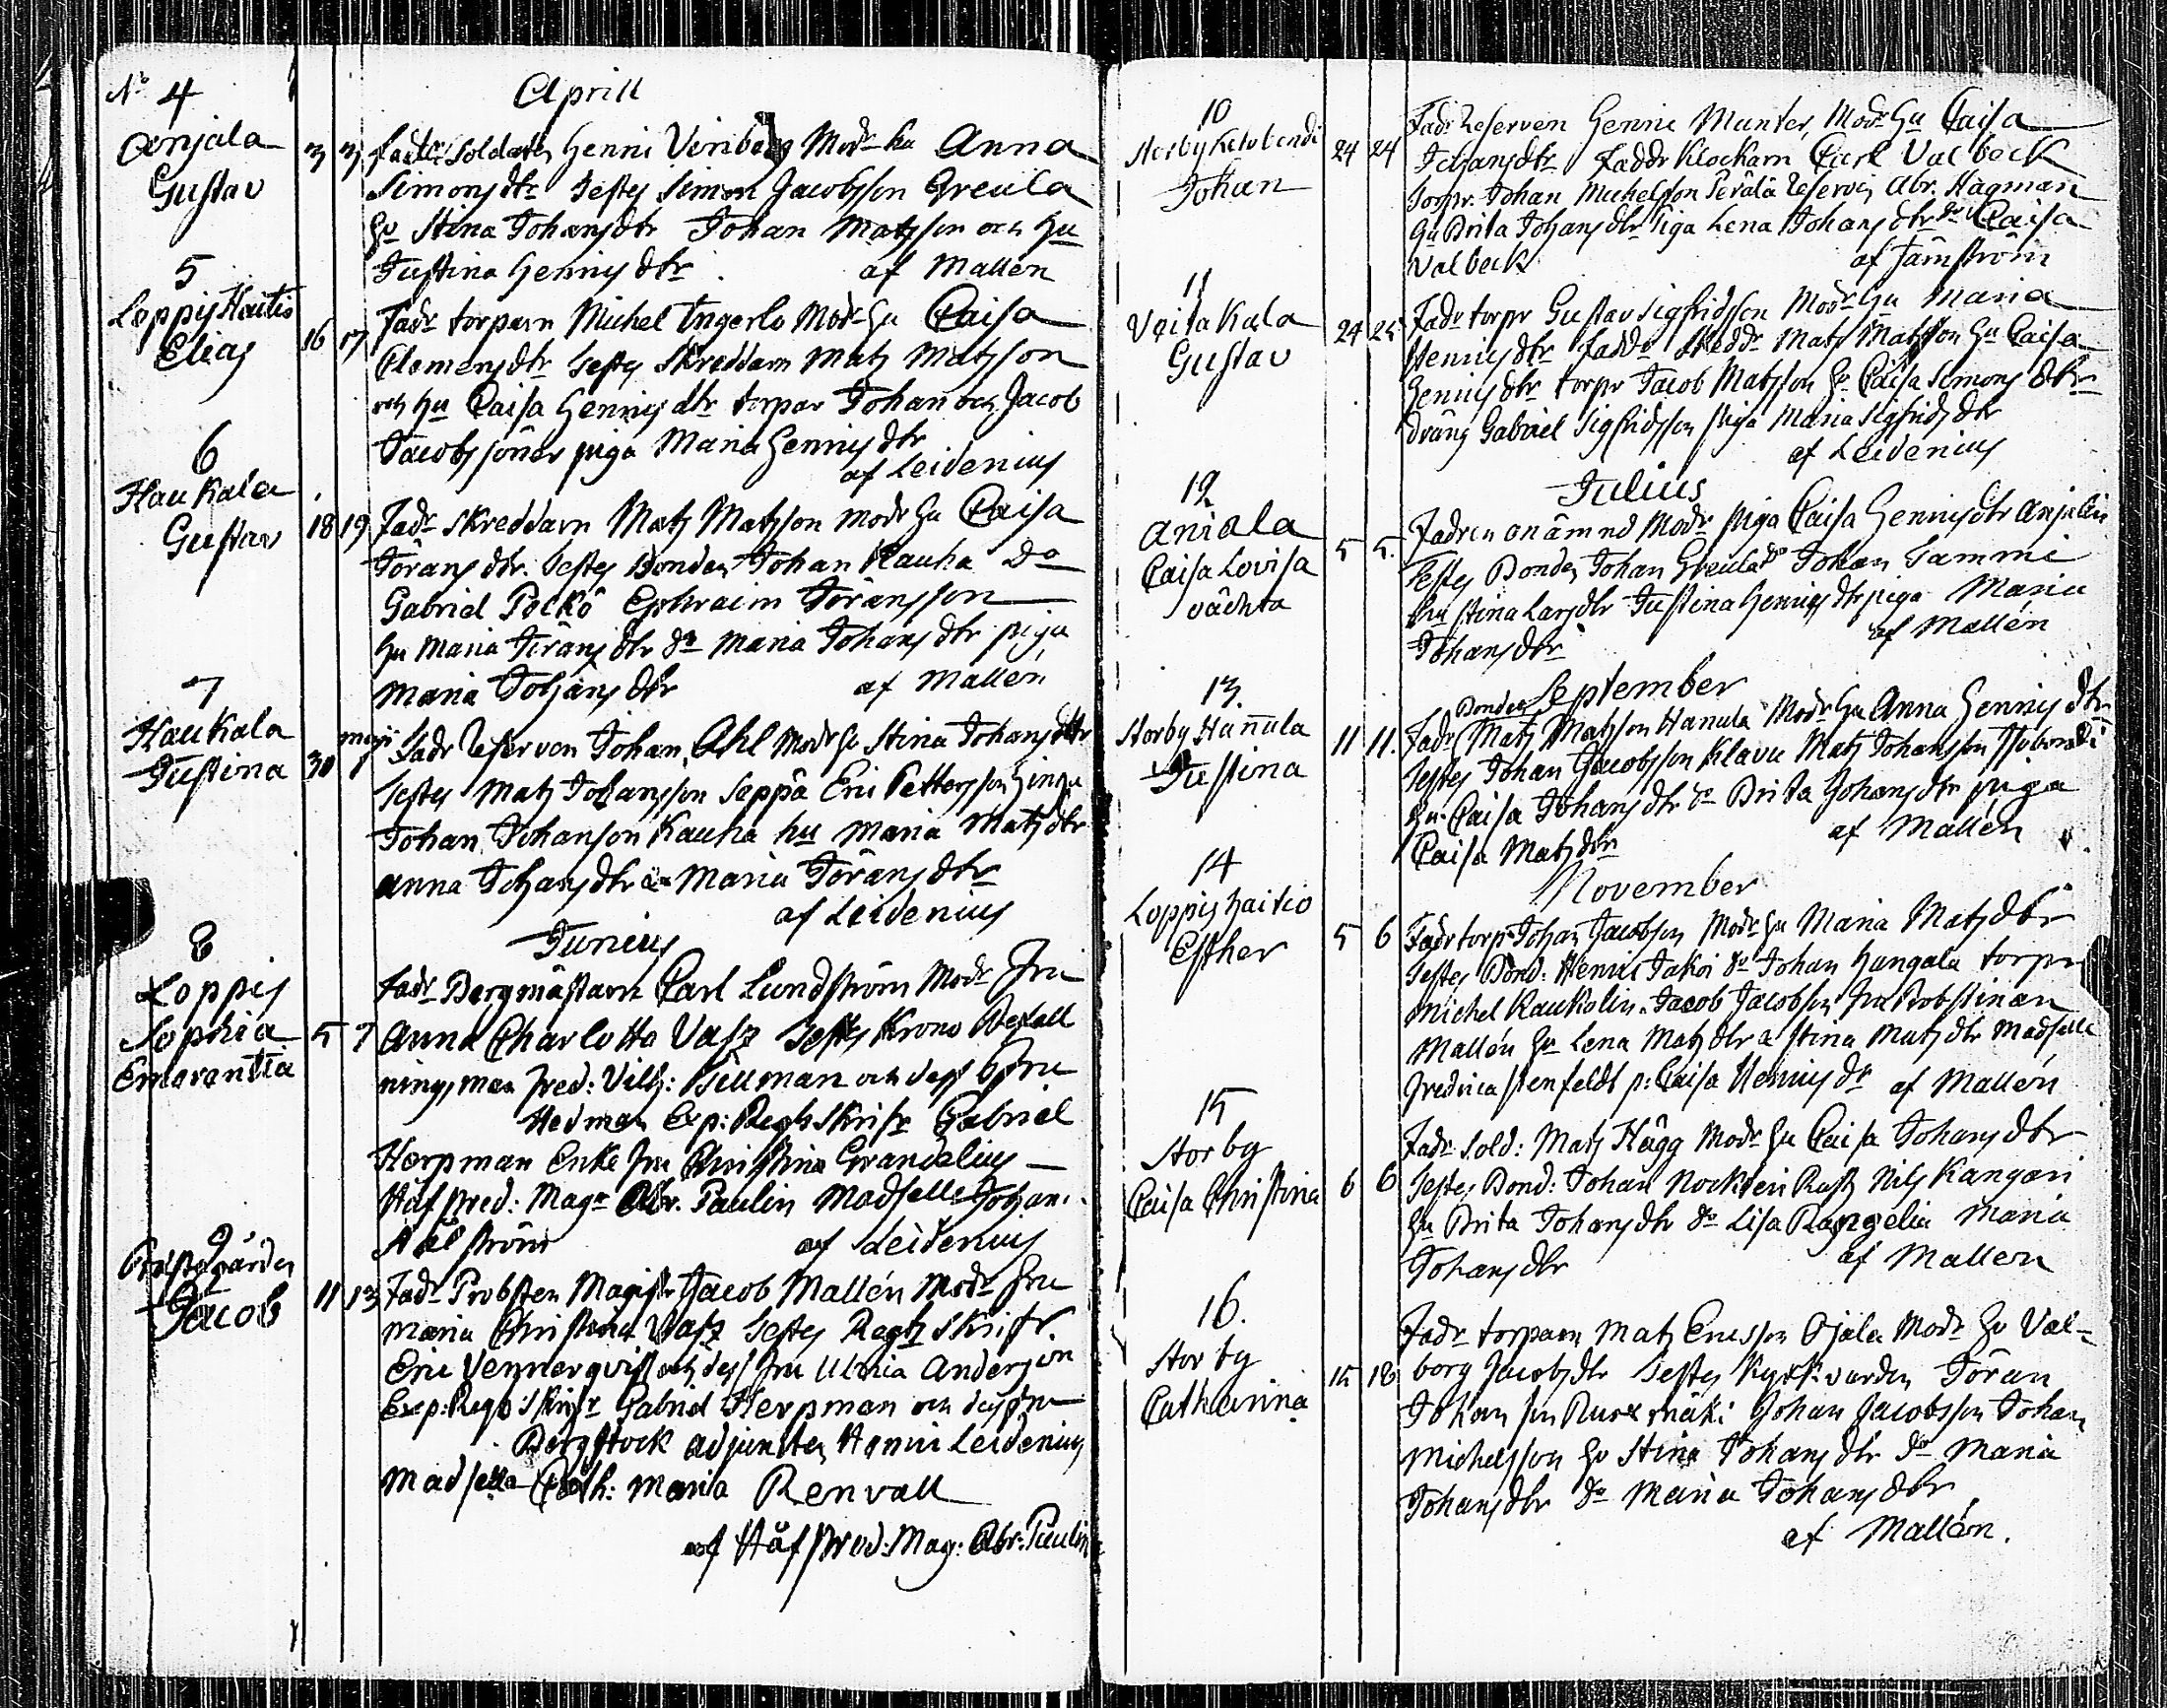 No 4
Aprill
Anjala
Gustav
3 3 Fadr Soldaten Henric Vinberg Modr hu Anna
Simonsdtr Testes Simon Jacobsson Greula
hu Stina Johansdtr Johan Matsson och hu
Justina Henricsdtr af Mallén
5
Loppis Haitio
Elias
16 17 Fadr torparn Michel Ingerlo Modr hu Caisa
Clemensdtr Testes Skreddarn Mats Matsson
och hu Caisa Henricsdtr torpar Johan och Jacob
Jacobssöner piga Maria Henricsdtr
af Leidenius
6
Haukala
Gustav
18 19 Fadr Skreddarn Mats Matsson Modr hu Caisa
Göransdtr. Testes Bonden Johan Kauha Do
Gabriel Pockö Ephraim Göransson
hu Maria Göransdtr do Maria Johansdtr piga
Maria Johansdtr af Mallén
7
Haukala
Justina
30 maji 1 Fadr Reserven Johan Ahl Modr hu Stina Johansdtr
Testes Mats Johansson Seppä Eric Pettersson
Johan Johanson Kauha hu Maria Matsdtr
Anna Johansdtr do Maria Göransdtr
af Leidenius
Junius
8
Loppis
Sophia
Emerentia
5 7 Fadr Bergmästarn Carl Lundström Modr Fru
Anna Charlotta Vasz Testes Krono Befall
ningsman Fred: Vilh: Billman och dess Fru
Hedman Exp: Regts Skrifr Gabriel
Herpman Enke Fru Christina Grandelius
Håf Pred: Magr Abr. Paulin Madselle Johan:
Ahlström af Leidenius
9
Prästgården
Jacob
11 13 Fadr Probsten Magistr Jacob Mallén Modr Fru
Maria Christina Vasz Testes Regts Skrifr.
Eric Vennerqvist och dess Fru Ulrica Anderson
Exp: Regs: Skrifr Gabriel Herpman och dess Fru
Bergstock adjuncten Henric Leidenius
Madsella Cath: Maria Renvall
af Håf Pred: Mag: Abr: Paulin
10
Storby Ketobendi
Johan
24 24 Fadr Reserven Henric Munter, Modr hu Caisa
Johansdtr Faddr Klockarn Carl Valbeck
Torpr. Johan Michelsson Perälä Reserven Abr. Hagman
hu Brita Johansdtr Piga Lena Johansdtr do Caisa
Valbeck af Jamström
11
Voitakala
Gustav
24 25 Fadr torpr Gustav Sigfridsson Modr hu Maria
Henricsdtr Faddr Skeddr Mats Matsson hu Caisa
Henricsdtr torpr Jacob Matsson hu Caisa Simonsdtr
dräng Gabriel Sigfridsson piga Maria Sigfridsdtr
af Leidenius
Julius
12
Anjala
Caisa Lovisa
oächta
5 5. Fadren onämnd Modr piga Caisa Henricsdtr Anjalin
Testes Bonden Johan Greula do Johan Tammi
hu Stina Larsdtr Justina Henricsdtr piga Maria
Johansdtr af Mallén
September
13.
Storby Hannula
Justina
11 11. Fadr Bonden Mats Matsson Hanula Modr hu Anna Henricsdtr
Testes Johan Jacobsson Klavu Mats Johansson
hu Caisa Johansdtr do Brita Johansdtr piga
Caisa Matsdtr af Mallén
November
14
Loppis haitio
Esther
5 6 Fadr torpr Johan Jacobsson Modr hu Maria Matsdtr
Testes Bond: Henric Jakoi do Johan Hangala torpr
Michel Kaukolin Jacob Jacobsson Fru Probstinan
Mallén hu Lena Matsdtr do Stina Matsdtr Madselle
Fredrica Stenfeldt p: Caisa Henricsdr af Mallén
15
Storby
Caisa Christina
6 6 Fadr Sold: Mats Hägg Modr hu Caisa Johansdtr
Testes Bond: Johan Nockteri Rusth Nils Kangari
hu Brita Johansdtr do Lisa Rangelin Maria
Johansdtr af Mallén
16.
Storby
Catharina
15 18 Fadr torparn Mats Ericsson Ojala Modr hu Val-
borg Jacobsdtr Testes Kyrkvarden Göran
Johansson Johan Jacobsson Johan
Michelsson hu Stina Johansdtr do Maria
Johansdtr do Maria Johansdtr
af Mallén.